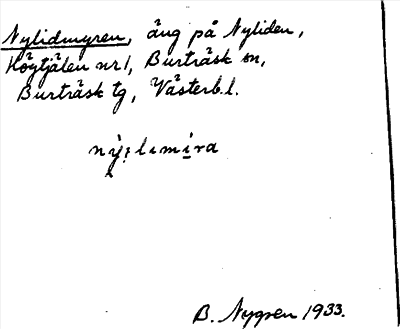 Nylidmyren, äng på Nyliden,
Högtjälen nr 1, Burträsk sn,
Burträsk tg, Västerb. l.
B. Nygren 1933.